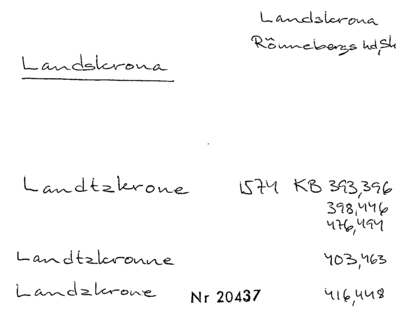 Landskrona
Rönnebergs hd, Sk
Landskrona
Landtzkrone 1574 KB 393,396
398,446
476,494
Landtzkronne 403,463
Landzkrone Nr 20437 416,448